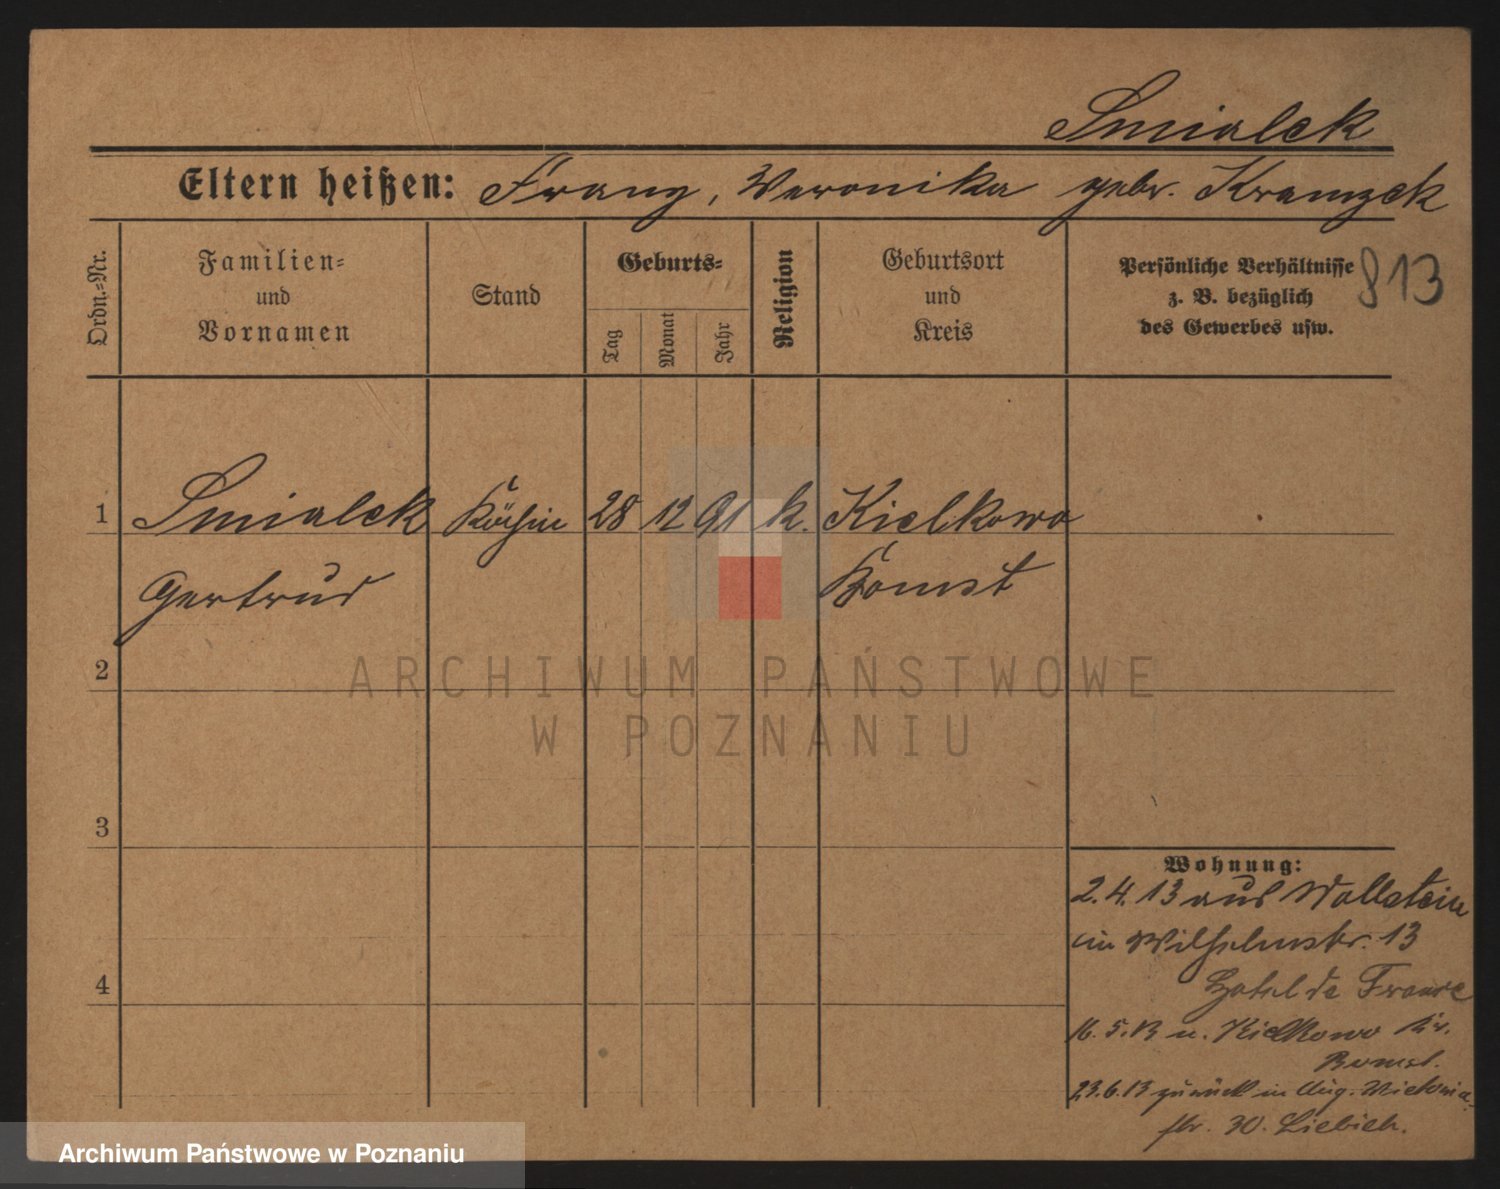 Smialek
Eltern heißen: Franz, Veronika gebr. Kramzek
Ordn.=Nr.
Familien=
und
Vornamen
Stand
Geburts=
Tag
Monat
Jahr
Religion
Geburtsort
und
Kreis
Persönliche Verhältnisse
z. B. bezüglich
des Gewerbes usw.
813
1 Smialek Köchin 28 12 91 k. Kielkowo
Gertrud Bomst
2
3
4
ARCHIWUM PAŃSTWOWE
W POZNANIU
Wohnung:
2. 4. 13 aus Wollstein
in Wilhelmstr. 13
Hotel de France
16. 5. 13 n. Kielkowo Kr.
Bomst.
23. 6. 13 zurück in Aug. Victoria-
str. 30. Liebich.
Archiwum Państwowe w Poznaniu